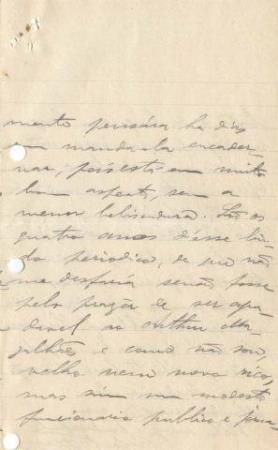 mento pensára ha dias
em mandal-a encader-
nar, pois está em muito
bom aspecto, sem a
menor beliscadura. São os
quatro annos d'esse lin-
do periodico, de que não
me desfaria senão fosse
pelo prazer de ser agra-
davel ao Arthur Ma-
galhães e como não sou
velho nem novo rico,
mas sim um modesto
funccionario publico e jorna-